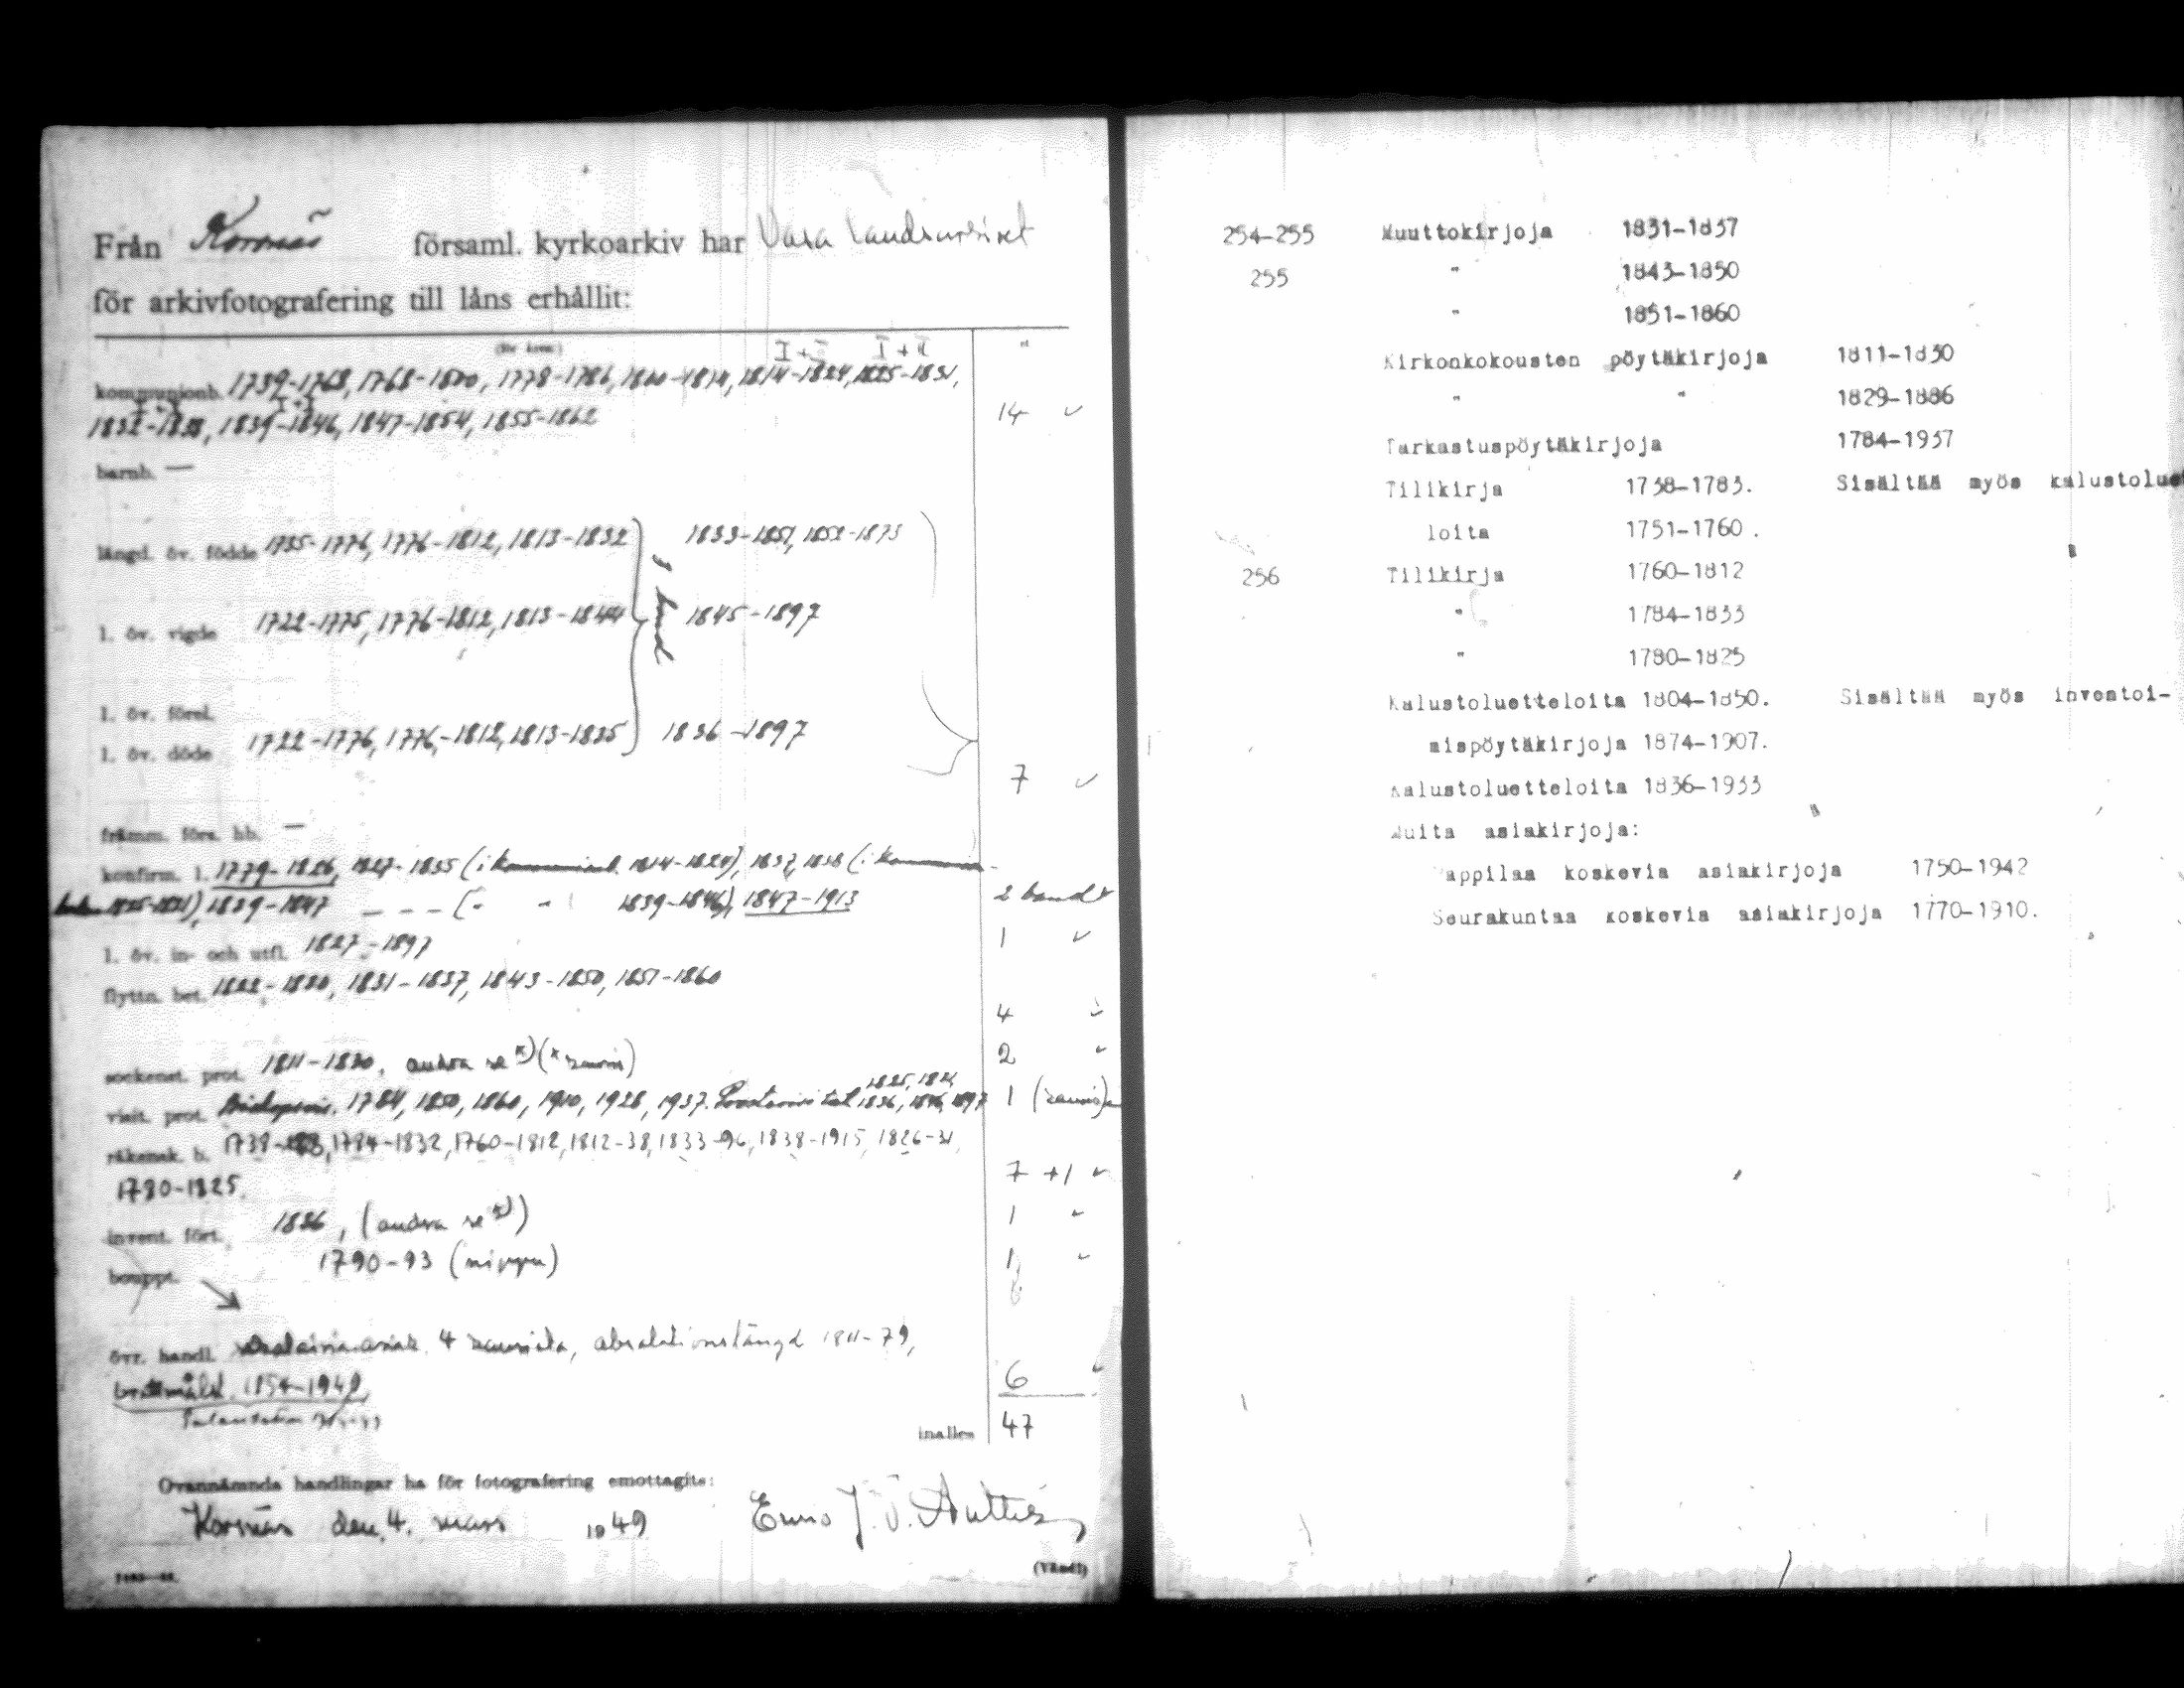 Från Korsnäs församl. kyrkoarkiv har Vasa landsarkivet
för arkivfotografering till låns erhållit:
I+II I+II
kommunionb. 1739-1768, 1768-1800, 1778-1786, 1800-1814, 1814-1824, 1825-1831,
I+II I+II
1832-1838, 1839-1846, 1847-1854, 1855-1862 14 ✓
barnb. —
längd. öv. födde 1735-1776, 1776-1812, 1813-1832 1833-1851, 1852-1873
l. öv. vigde 1722-1775, 1776-1812, 1813-1844 1845-1897
l. öv. förel.
l. öv. döde 1722-1776, 1776-1812, 1813-1835 1836-1897
7 ✓
främm. förs. bb. —
konfirm. l. 1779-1826, 1827-1835 (i 1814-1824), 1837, 1838 (i
1825-1831), 1839-1847 — — — (" " 1839-1846), 1847-1913 2 bandt
l. öv. in- och utfl. 1827-1897 1 ✓
flyttn. bet. 1822-1830, 1831-1837, 1843-1850, 1851-1860
4 ✓
sockenst. prot. 1811-1830, andra se x) 2 ✓
visit. prot. 1784, 1850, 1860, 1910, 1928, 1937. 1836, 1846, 1897 1
räkensk. b. 1784-1832, 1760-1812, 1812-38, 1833-96, 1838-1915, 1826-31,
1780-1825. 7 +1 ✓
invent. fört. 1836, (andra se x)) 1 ✓
bouppt. 1790-93 1 ✓
övr. handl. 4 absolutionslängd 1811-79,
1854-1949 6 ✓
inalles 47
Ovannämnda handlingar ha för fotografering emottagits:
Korsnäs den 4. mars 1949
(Vänd!)
254-255 Muuttokirjoja 1831-1837
255 " 1843-1850
" 1851-1860
Kirkonkokousten pöytäkirjoja 1811-1830
" " 1829-1886
Tarkastuspöytäkirjoja 1784-1937
Tilikirja 1738-1783. Sisältää myös kalustoluet
loita 1751-1760 .
256 Tilikirja 1760-1812
" 1784-1833
" 1780-1825
Kalustoluetteloita 1804-1850. Sisältää myös inventoi-
mispöytäkirjoja 1874-1907.
Kalustoluetteloita 1836-1933
Muita asiakirjoja:
Pappilaa koskevia asiakirjoja 1750-1942
Seurakuntaa koskevia asiakirjoja 1770-1910.